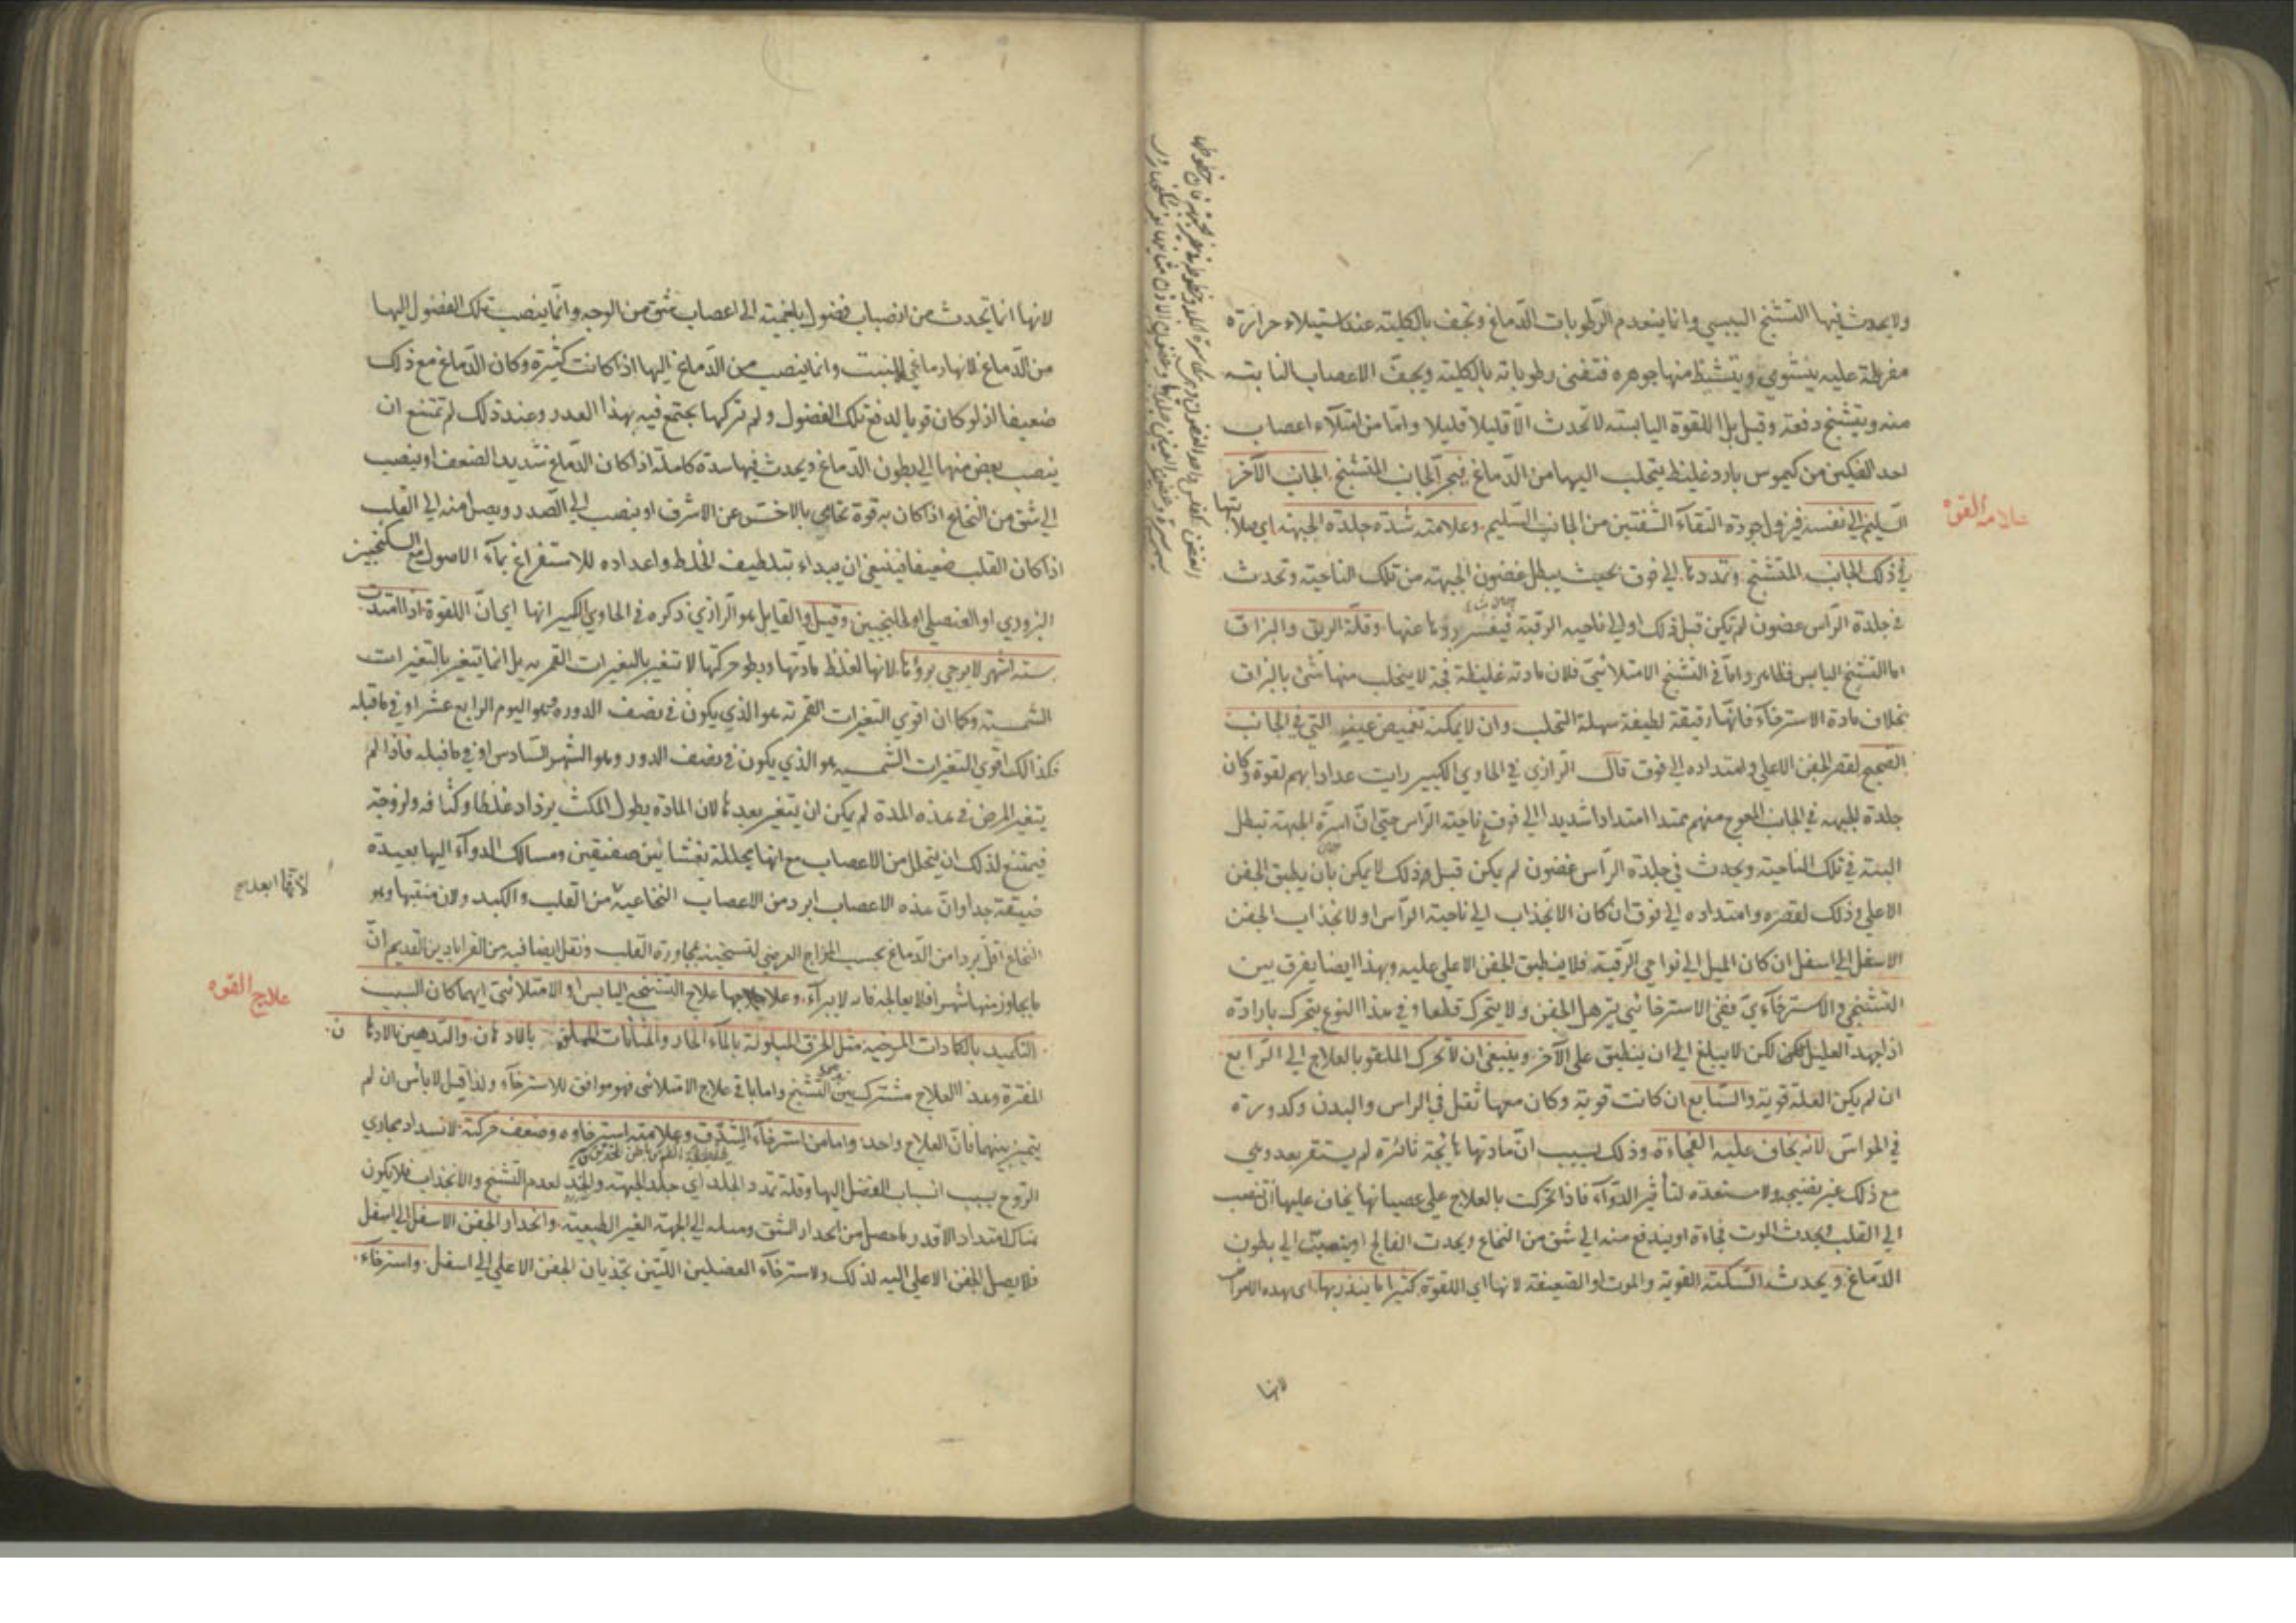 ولا يحدث فيها التشنج اليبسي وانما ينعدم الرطوبات الدماغ وتجف بالكلية عند استيلاء حرارة
مفرطة عليه ينشوي ويتشيط منها جوهره فتفنى رطوباته بالكلية ويجف الاعصاب النابتة
منه ويتشنج دفعة وقيل بل اللقوة اليابسة لا تحدث الا قليلا قليلا واما من امتلاء اعصاب
احد الفكين من كيموس بارد غليظ يتحلب اليها من الدماغ فيجر الجانب المتشنج الجانب الآخر
السليم الى نفسه فيزول جودة التقاء الشفتين من الجانب السليم وعلامته شدة جلدة الجبهة اي صلابتها
علامة القوه
في ذلك الجانب المتشنج وتمددها الى فوق بحيث يبطل غضون الجبهة من تلك الناحية وتحدث
في جلدة الرأس غضون لم تكن قبل ذلك او الى ناحية الرقبة فيعسر ردها عنها وقلة الريق والبزاق
اما التشنج اليابس فظاهر واما في التشنج الامتلائي فلان مادته غليظة فجة لا يتحلب منها شئ بالبزاق
بخلاف مادة الاسترخاء فانها رقيقة لطيفة سهلة التحلب وان لا يمكنه تغميض عينه التي في الجانب
الصحيح لقصر الجفن الاعلى وامتداده الى فوق قال الرازي في الحاوي الكبير رايت عدادا بهم لقوة وكان
جلدة الجبهة في الجانب المعوج منهم ممتدا امتدادا شديدا الى فوق ناحية الرأس حتى ان اسرة الجبهة تبطل
البتة في تلك الناحية ويحدث في جلدة الرأس غضون لم يكن قبل وذلك لا يمكن بان يطبق الجفن
الاعلى وذلك لقصره وامتداده الى فوق ان كان الانجذاب الى ناحية الرأس او لانجذاب الجفن
الاسفل الى اسفل ان كان الميل الى نواحي الرقبة فلا ينطبق الجفن الاعلى عليه وبهذا ايضا يفرق بين
التشنجي والاسترخاءي ففي الاسترخائي يترهل الجفن ولا يتحرك قطعا وفي هذا النوع يتحرك بارادة
اذا جهد العليل لكن لا يبلغ الى ان ينطبق على الآخر وينبغي ان لا تحرك الملقو بالعلاج الى الرابع
ان لم يكن العلة قوية والسابع ان كانت قوية وكان معها ثقل في الراس والبدن وكدورة
في الحواس لانه يخاف عليه الفجاءة وذلك بسبب ان مادتها هائجة ثائرة لم يستقر بعد وهي
مع ذلك غير نضيجة ولا مستعدة لتأثير الدواء فاذا تحركت بالعلاج على عصيانها يخاف عليها ان تنصب
الى القلب ويحدث الموت فجاءة او يندفع منه الى شق من النخاع ويحدث الفالج او ينصب الى بطون
الدماغ ويحدث السكتة القوية والموت او الضعيفة لانها اي اللقوة كثيرا ما ينذر بها اي بهذه الامراض
لانها
لانها انما تحدث من انصباب فضول بلغمية الى اعصاب شق من الوجه وانما ينصب تلك الفضول اليها
من الدماغ لانها دماغي المنبت وانما ينصب من الدماغ اليها اذا كانت كثيرة وكان الدماغ مع ذلك
ضعيفا اذ لو كان قويا لدفع تلك الفضول ولم تركها يجتمع فيه بهذا القدر وعند ذلك لم تمتنع ان
ينصب بعض منها الى بطون الدماغ ويحدث فيها سدة كاملة اذا كان الدماغ شديد الضعف او ينصب
الى شق من النخاع اذا كان به قوة تحامي بالاخس عن الاشرف او ينصب الى الصدر ويصل منه الى القلب
اذا كان القلب ضعيفا فينبغي ان يبداء بتلطيف الخلط واعداده للاستفراغ بماء الاصول مع السكنجبين
البزوري او العنصلي او الجلنجبين وقيل والقايل هو الرازي ذكره في الحاوي الكبير انها اي ان اللقوة اذا امتدت
ستة اشهر لا يرجى برؤها لانها لغلظ مادتها وبطؤ حركتها لا تتغير بالتغيرات القمرية بل انما تتغير بالتغيرات
الشمسية وكما ان اقوى التغيرات القمرية هو الذي يكون في نصف الدورة وهو اليوم الرابع عشر او في ما قبله
فكذالك اقوى التغيرات الشمسية هو الذي يكون في نصف الدور وهو الشهر السادس او في ما قبله فاذا لم
يتغير المرض في هذه المدة لم يمكن ان يتغير بعدها لان المادة بطول المكث يزداد غلظا وكثافة ولزوجة
فيمتنع لذلك ان يتحلل من الاعصاب مع انها مجللة بغشائين صفيقين ومسالك الدواء اليها بعيدة
لانها ابعد
ضيقة جدا وان هذه الاعصاب ابرد من الاعصاب النخاعية من القلب والكبد ولان منبتها وهو
النخاع اقل بردا من الدماغ بحسب المزاج العرضي لتسخينه بمجاورة القلب ونقل ايضا فيه من القراباذين القديم ان
ما يجاوز منها شهرا فلا يعالج فانه لا يبرأ وعلاجها علاج التشنج اليابس او الامتلائي ايهما كان السبب
علاج القوه
التكميد بالكمادات المرخية مثل الخرق المبلولة بالماء الحار والمثانات المملوة بالادهان والتدهين بالادهان
المفترة وهذا العلاج مشترك بين التشنج واما باقي علاج الامتلائي فهو موافق للاسترخاء ولذا قيل لا بأس ان لم
يتميز بينهما فان العلاج واحد واما من استرخاء الشدق وعلامته استرخاوه وضعف حركته لانسداد مجاري
الروح بسبب انسباب الفضل اليها وقلة تمدد الجلد اي جلد الجبهة والخد لعدم التشنج والانجذاب فلا يكون
هناك امتداد الا قدر ما حصل من انحدار الشق وميله الى الجهة الغير الطبيعية وانحدار الجفن الاسفل الى اسفل
فلا يصل الجفن الاعلى اليه لذلك ولاسترخاء العضلين اللتين تجذبان الجفن الاعلى الى اسفل واسترخاء